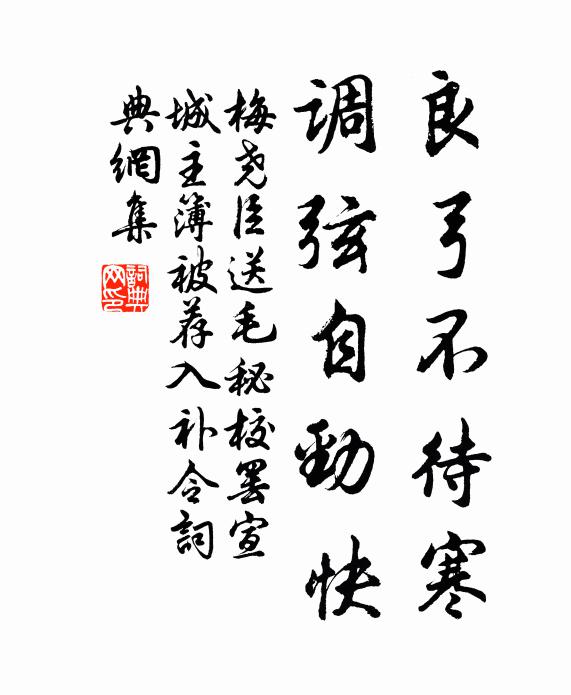 良弓不待寒
调弦自勁快
梅尧臣送毛秘校罢宣
城主簿被荐入补令詞
典網集
詞典网印